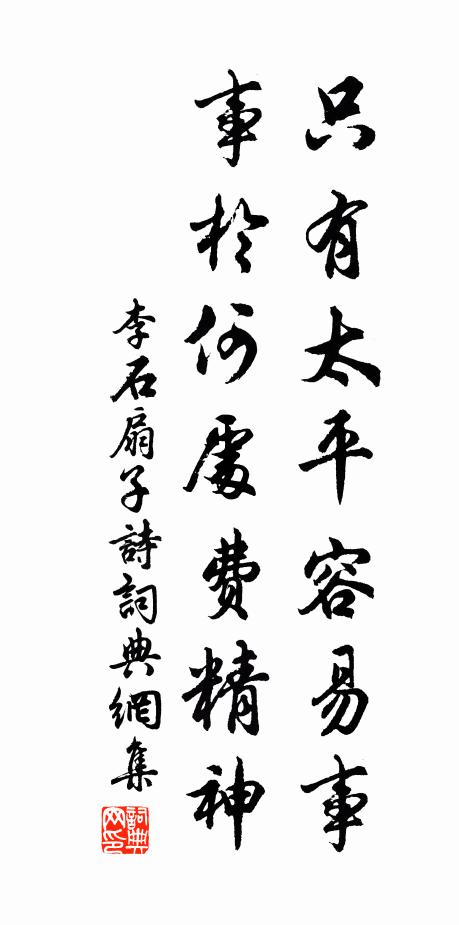 只有太平容易事
事於何處費精神
李石扇子詩詞典網集
詞典网印